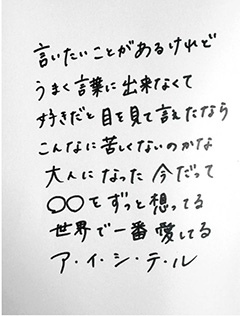 言いたいことがあるけれど
うまく言葉に出来なくて
好きだと目を見て言えたなら
こんなに苦しくないのかな
大人になった今だって
○○をずっと想ってる
世界で一番愛してる
ア・イ・シ・テ・ル